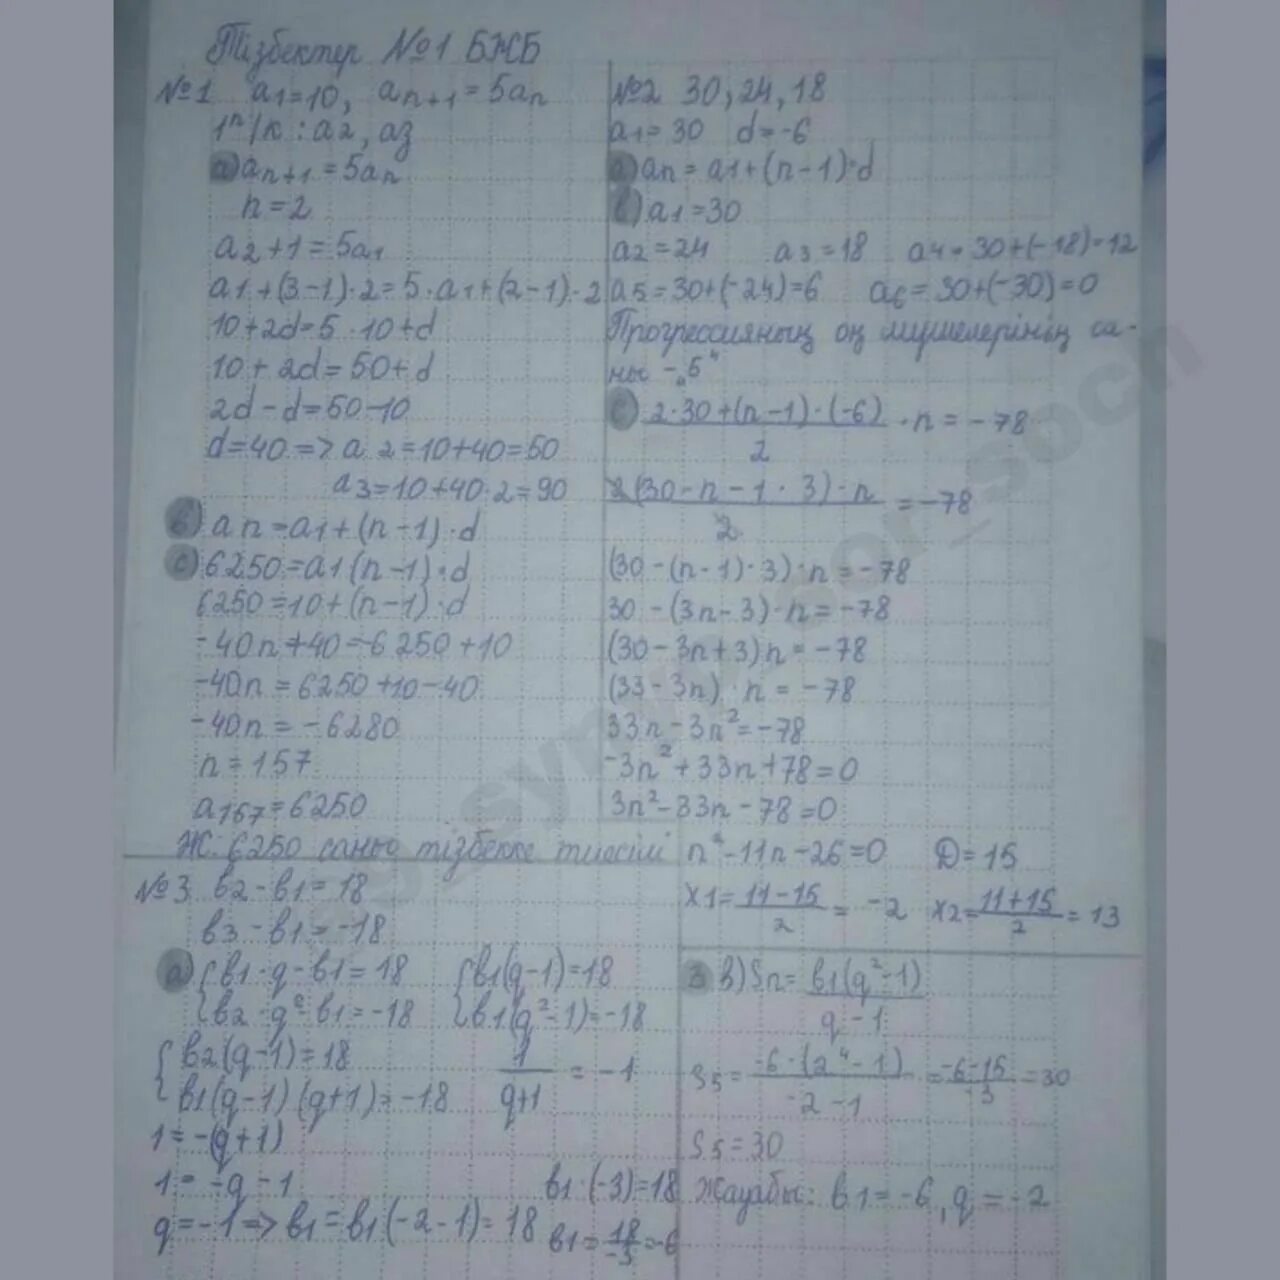 Тізбектер №1 БЖБ
№1 a1=10, an+1=5an
1ⁿ/к : a2, a3
a) an+1=5an
n=2
a2+1=5a1
a1+(3-1)·2=5·a1+(2-1)·2
10+2d=5·10+d
10+2d=50+d
2d-d=50-10
d=40=>a2=10+40=50
a3=10+40·2=90
b) an=a1+(n-1)·d
c) 6250=a1(n-1)·d
6250=10+(n-1)·d
-40n+40=6250+10
-40n=6250+10-40
-40n=-6280
n=157
a167=6250
Ж: 6250 саны тізбекке тиесілі
№2 30, 24, 18
a1=30 d=-6
a) an=a1+(n-1)·d
b) a1=30
a2=24 a3=18 a4=30+(-18)=12
a5=30+(-24)=6 a6=30+(-30)=0
Прогрессияның оң мүшелерінің са-
ны - "5"
c) 2·30+(n-1)·(-6)/2 ·n=-78
2(30-n-1·3)·n/2 =-78
(30-(n-1)·3)·n=-78
30-(3n-3)·n=-78
(30-3n+3)n=-78
(33-3n)·n=-78
33n-3n²=-78
-3n²+33n+78=0
3n²-33n-78=0
n²-11n-26=0 D=15
x1=11-15/2=-2 x2=11+15/2=13
№3 b2-b1=18
b3-b1=-18
a) {b1·q-b1=18 {b1(q-1)=18
{b2·q²-b1=-18 {b1(q²-1)=-18
{b2(q-1)=18 1/q+1 =-1
b1(q-1)(q+1)=-18
1=-(q+1)
1=-q-1 b1·(-3)=18
q=-1=>b1=b1(-2-1)=18 b1=18/-3=-6
3 b) Sn=b1(q²-1)/q-1
S5=-6·(2⁴-1)/-2-1=-6-15/-3=30
S5=30
Жауабы: b1=-6, q=-2